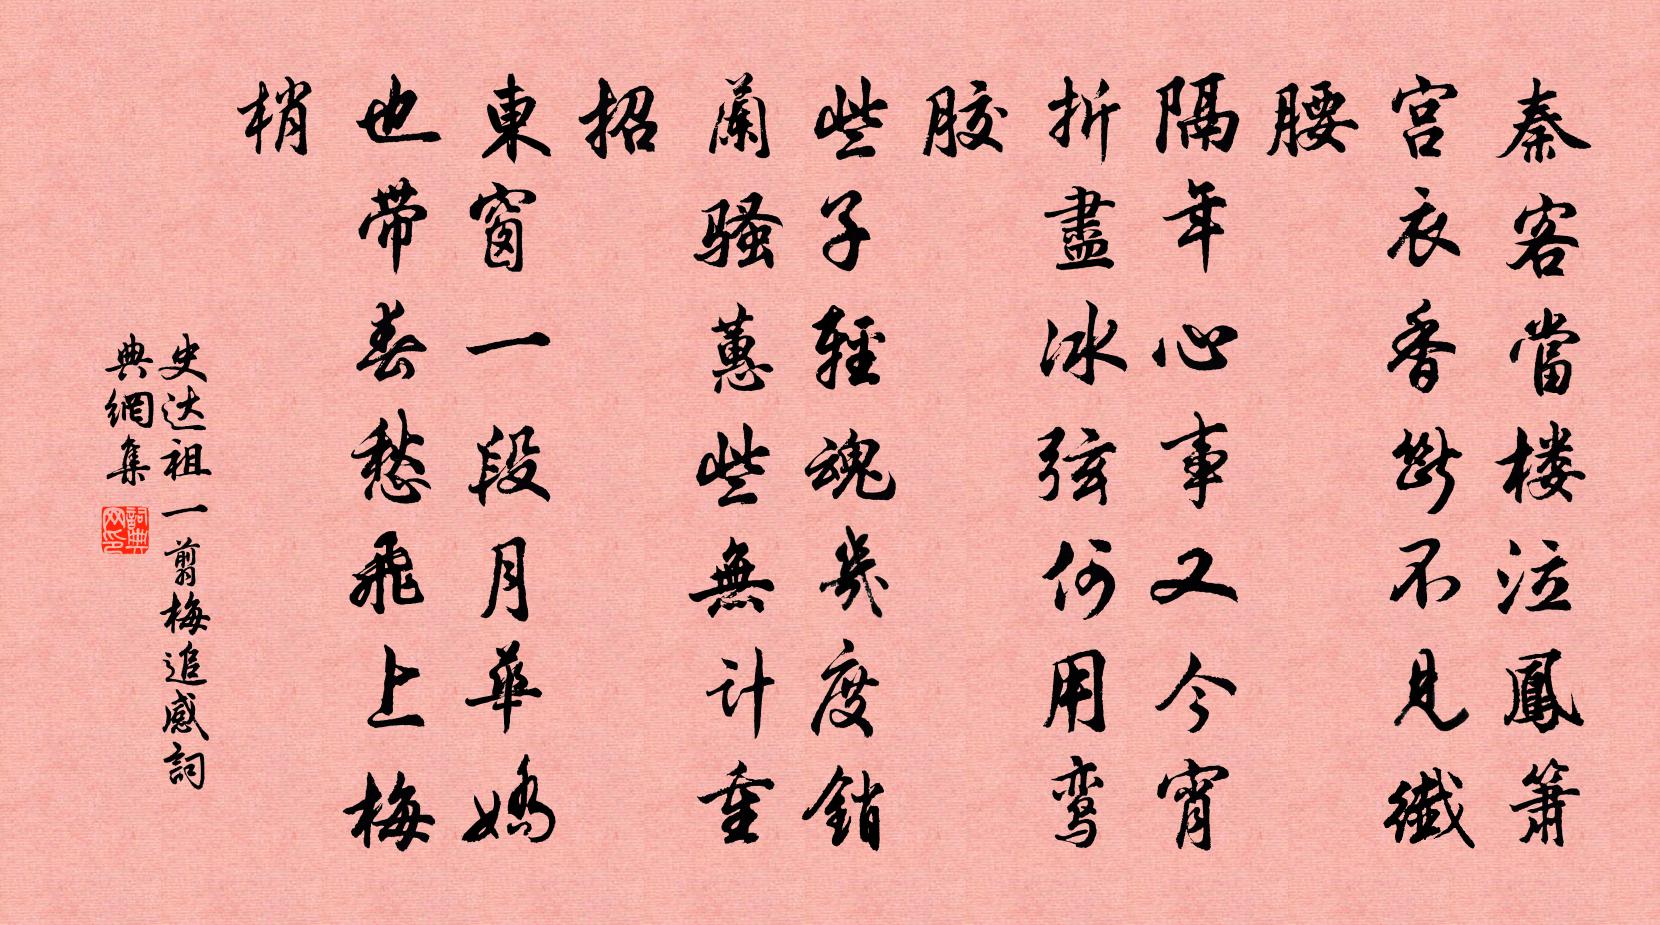 秦客當楼泣鳳簫
宫衣香斷不見纖
腰
隔年心事又今宵
折盡冰弦何用鸾
胶
些子輕魂幾度銷
蘭骚蕙些無计重
招
東窗一段月華嬌
也带春愁飛上梅
梢
史达祖一剪梅追感詞
典網集
詞典网印